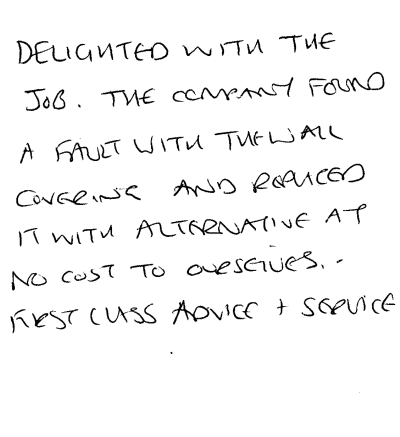 DELIGHTED WITH THE
JOB. THE COMPANY FOUND
A FAULT WITH THE WALL
COVERING AND REPLACED
IT WITH ALTERNATIVE AT
NO COST TO OURSELVES. -
FIRST CLASS ADVICE + SERVICE